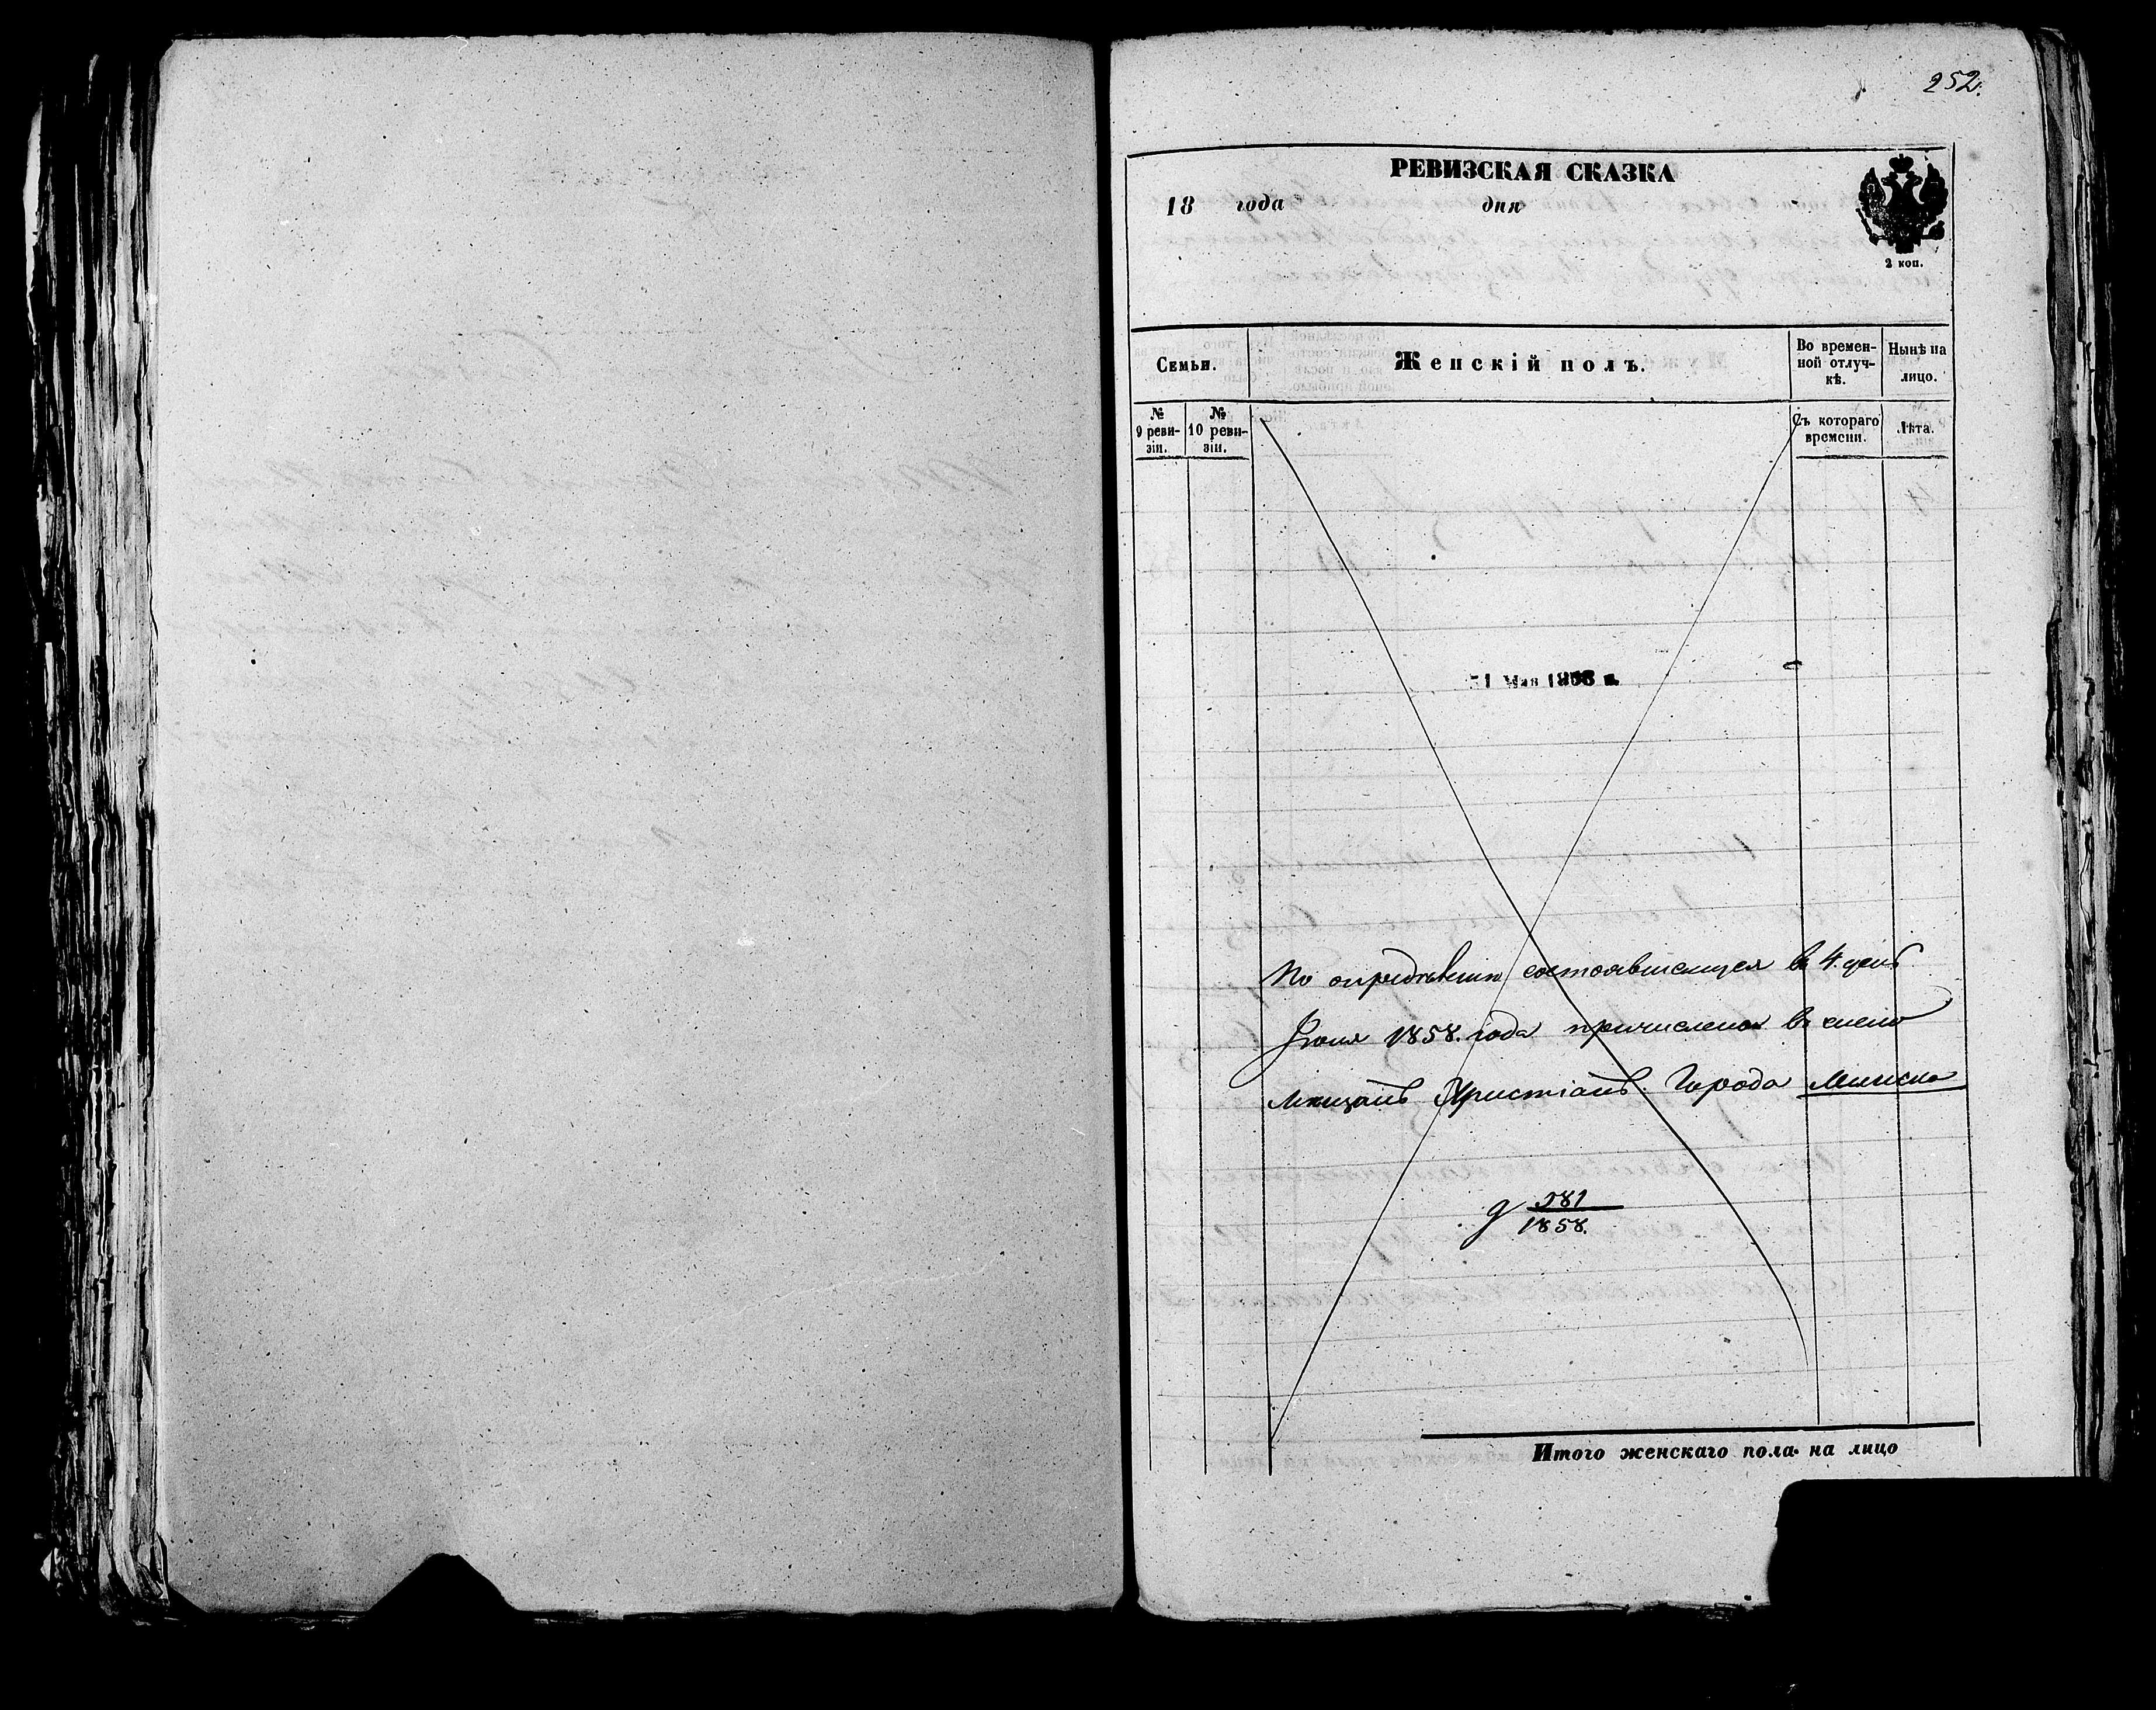 252.
РЕВИЗСКАЯ СКАЗКА
18 года дня
2 коп.
Семьи.
Женскій полъ.
Во времен-
ной отлуч-
кѣ.
Нынѣ на
лицо.
№
9 реви-
зіи.
№
10 реви-
зіи.
Съ котораго
времени.
Лѣта.
31 Мая 1858 г.
По опредѣленію состоявшемуся въ 4. день
Іюня 1858. года причисленъ въ число
мѣщанъ Христіанъ Города Минска
д 581
1858.
Итого женскаго пола на лицо